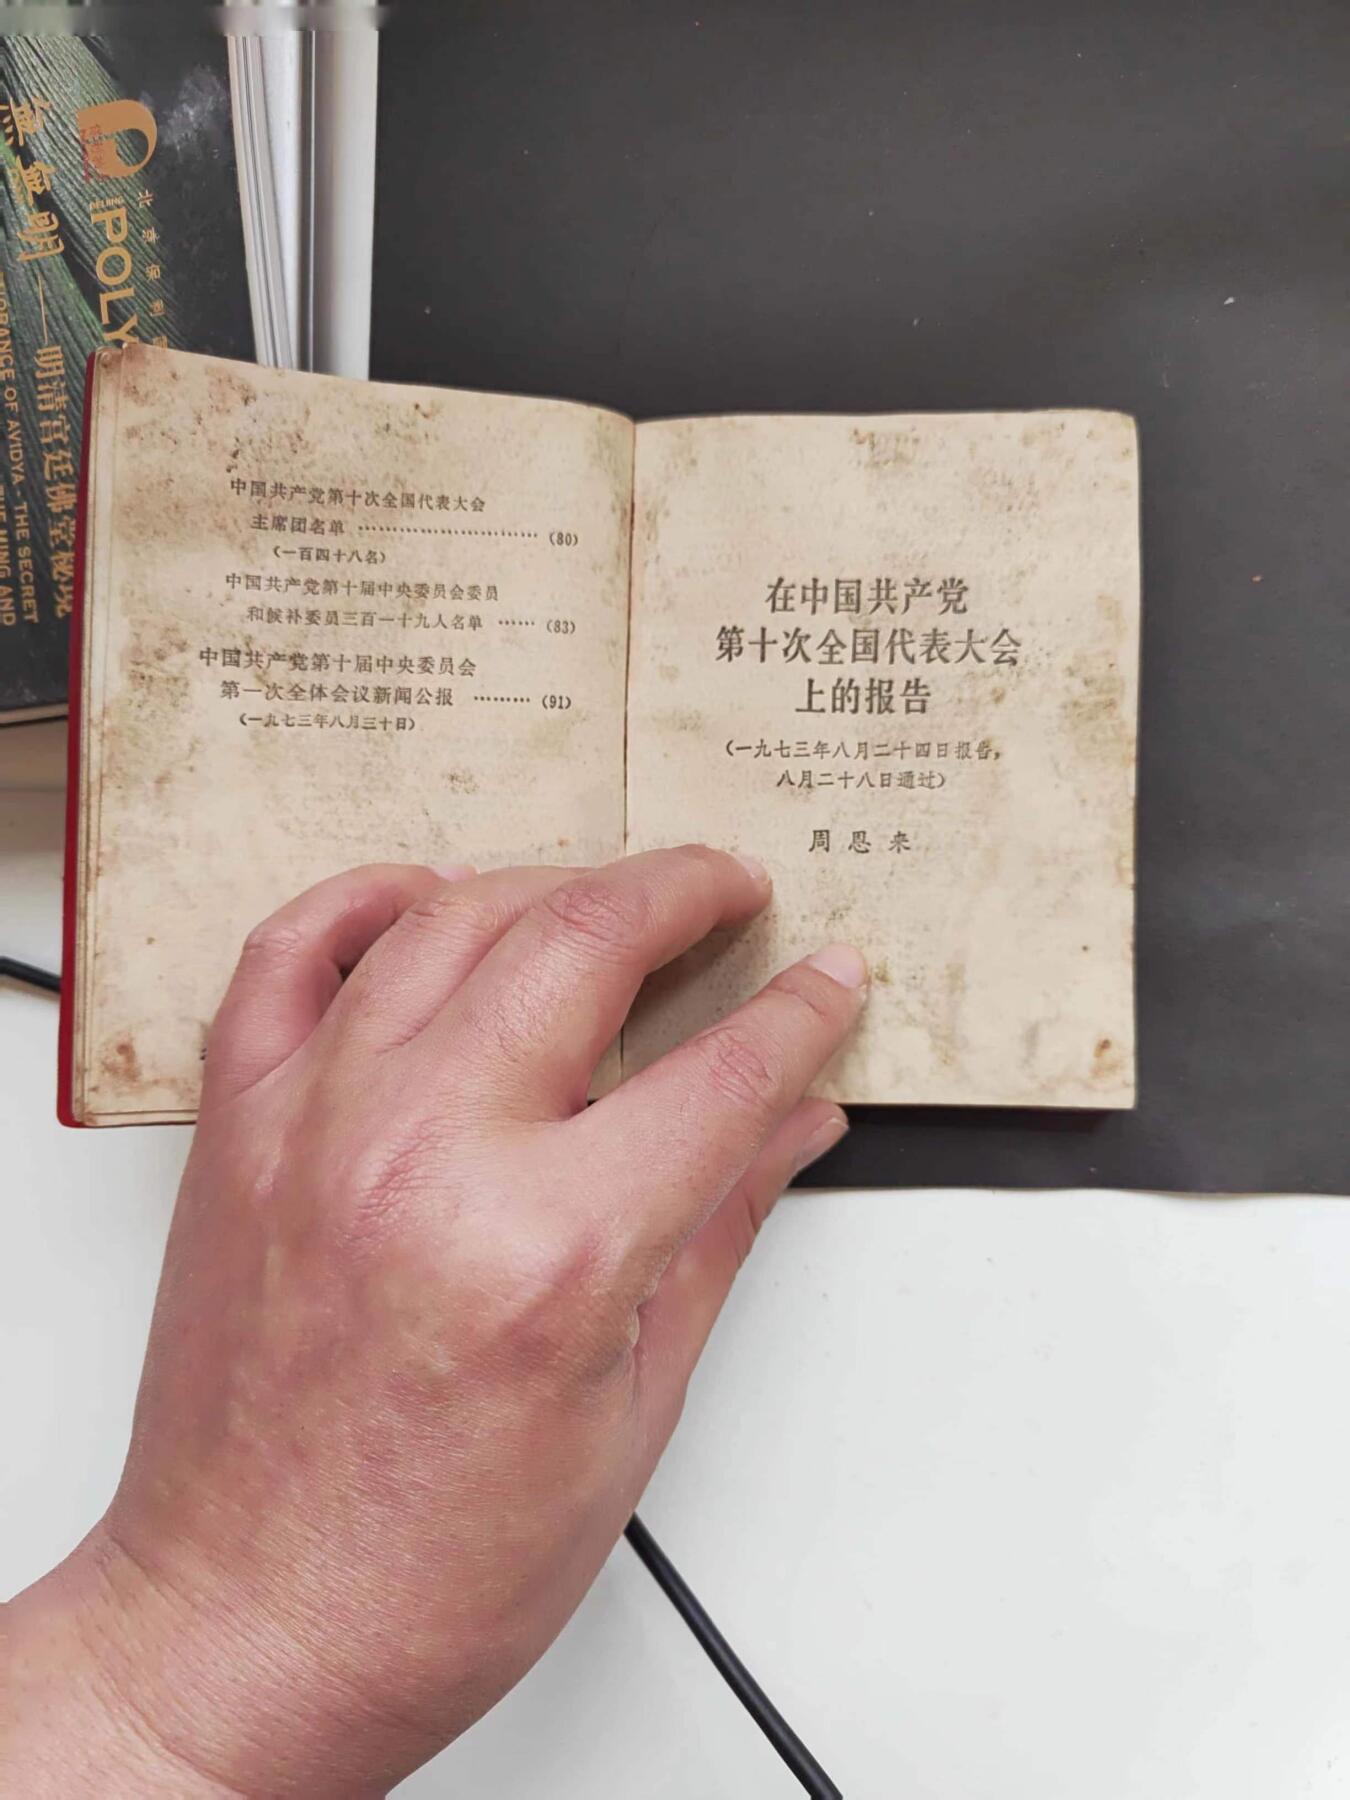 北京保利
POLY
无明——明清宫廷佛堂秘境
OF AVIDYA - THE SECRET
THE MING AND
中国共产党第十次全国代表大会
主席团名单 ……………………… (80)
(一百四十八名)
中国共产党第十届中央委员会委员
和候补委员三百一十九人名单 …… (83)
中国共产党第十届中央委员会
第一次全体会议新闻公报 ……… (91)
(一九七三年八月三十日)
在中国共产党
第十次全国代表大会
上的报告
(一九七三年八月二十四日报告,
八月二十八日通过)
周恩来